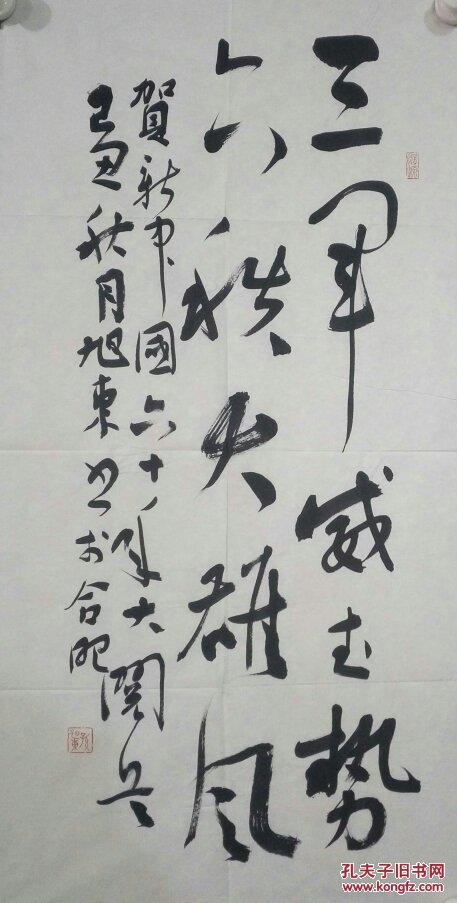 三军威武势
六秩大雄风
賀新中國六十年大閲兵
己丑秋月旭東书於合肥
孔夫子旧书网
www.kongfz.com